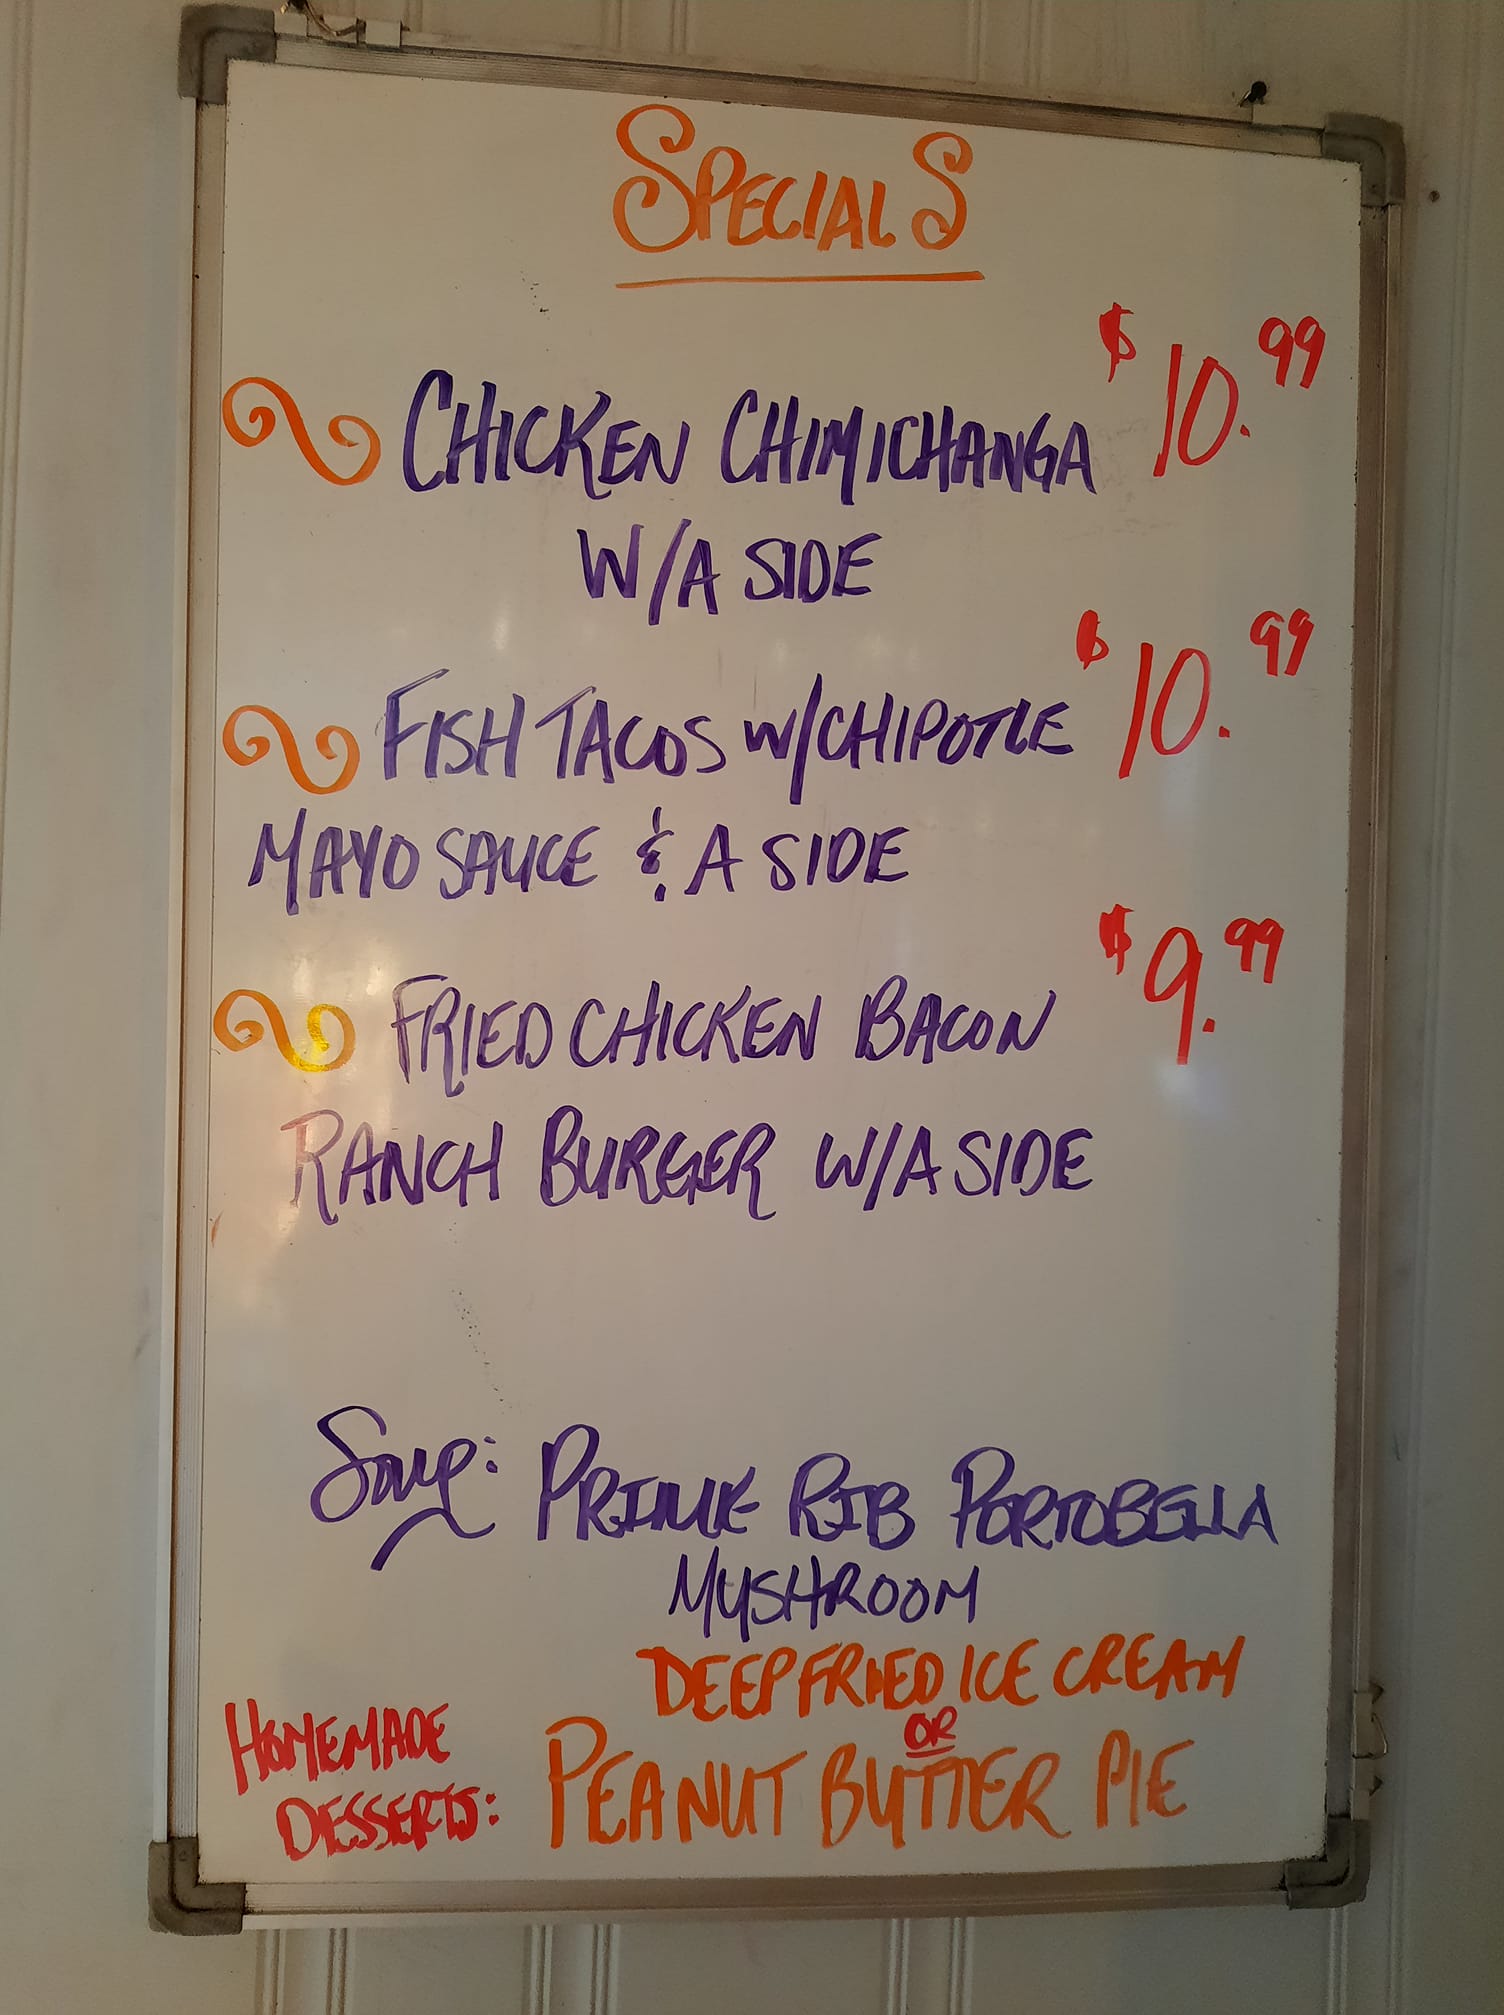 SPECIALS
CHICKEN CHIMICHANGA $10.99
W/A SIDE
FISH TACOS W/CHIPOTLE $10.99
MAYO SAUCE & A SIDE
FRIED CHICKEN BACON $9.99
RANCH BURGER W/A SIDE
Soup: PRIME RIB PORTOBELLA
MUSHROOM
DEEP FRIED ICE CREAM
OR
HOMEMADE
DESSERTS: PEANUT BUTTER PIE